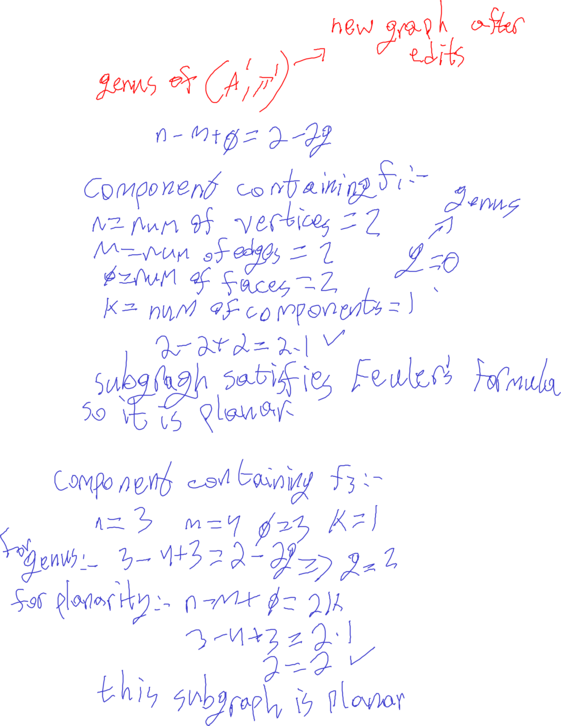 new graph after
edits
genus of (A', π')
n - m + φ = 2 - 2g
Component containing f₁:-
n = num of vertices = 2
genus
m = num of edges = 2
g = 0
φ = num of faces = 2
K = num of components = 1
2 - 2 + 2 = 2·1 ✓
subgragh satisfies Eeuler's formula
so it is planar
component containing f3:-
n = 3 m = 4 φ = 3 K = 1
for
genus:- 3 - 4 + 3 = 2 - 2g => 2 = 2
for planarity:- n - m + φ = 2K
3 - 4 + 3 = 2·1
2 = 2 ✓
this subgraph is planar